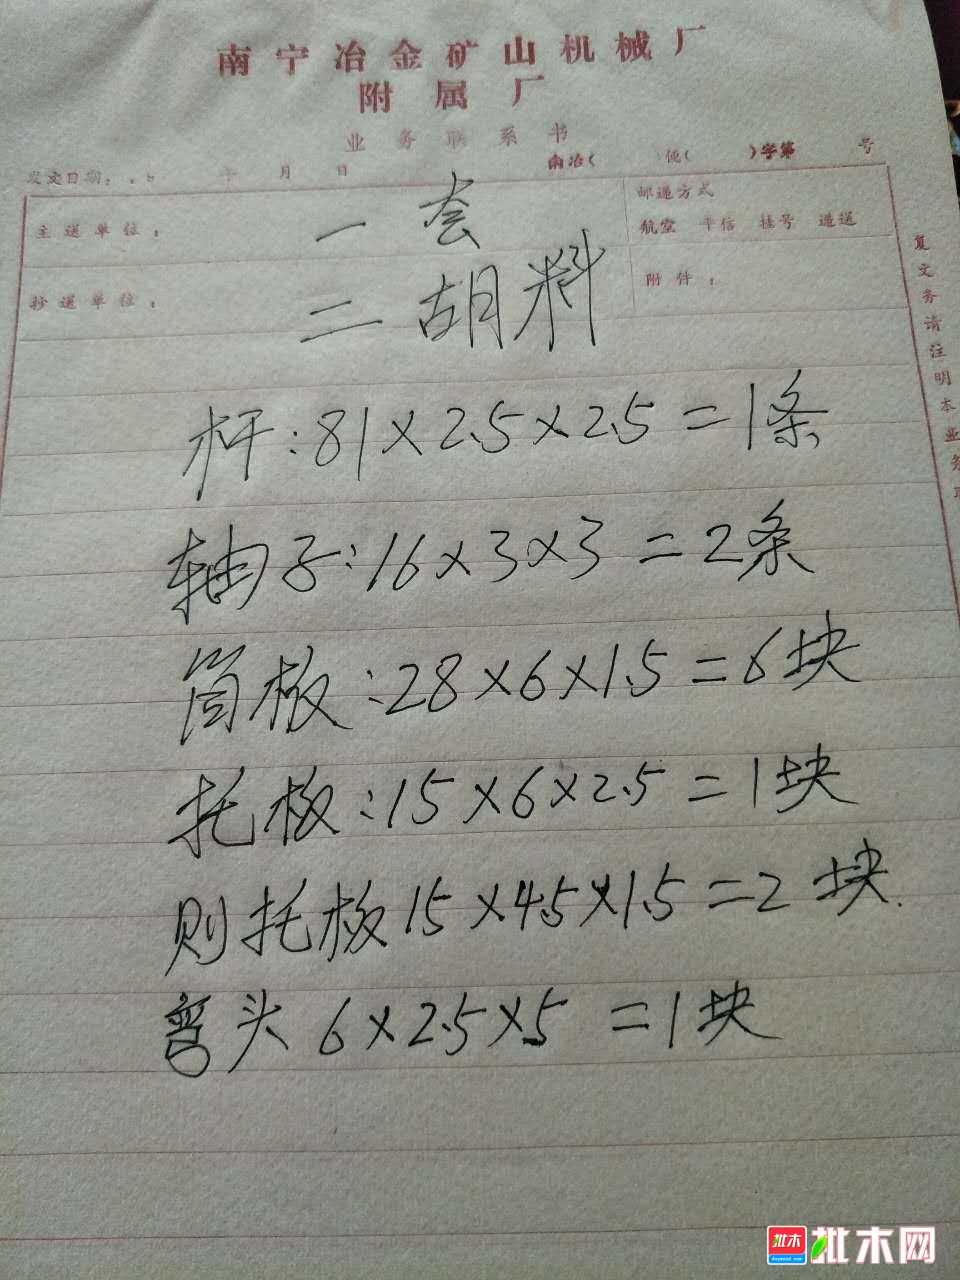 南宁冶金矿山机械厂
附属厂
业务联系书
发文日期： 年 月 日 南冶( 便( )字第 号
主送单位：
邮递方式
航空 平信 挂号 递送
抄送单位：
附件：
复文务请注明本业务联
一套
二胡料
杆:81×2.5×2.5=1条
轴子:16×3×3=2条
筒板:28×6×1.5=6块
托板:15×6×2.5=1块
则托板15×4.5×1.5=2块.
弯头 6×2.5×5 =1块
批木
批木网